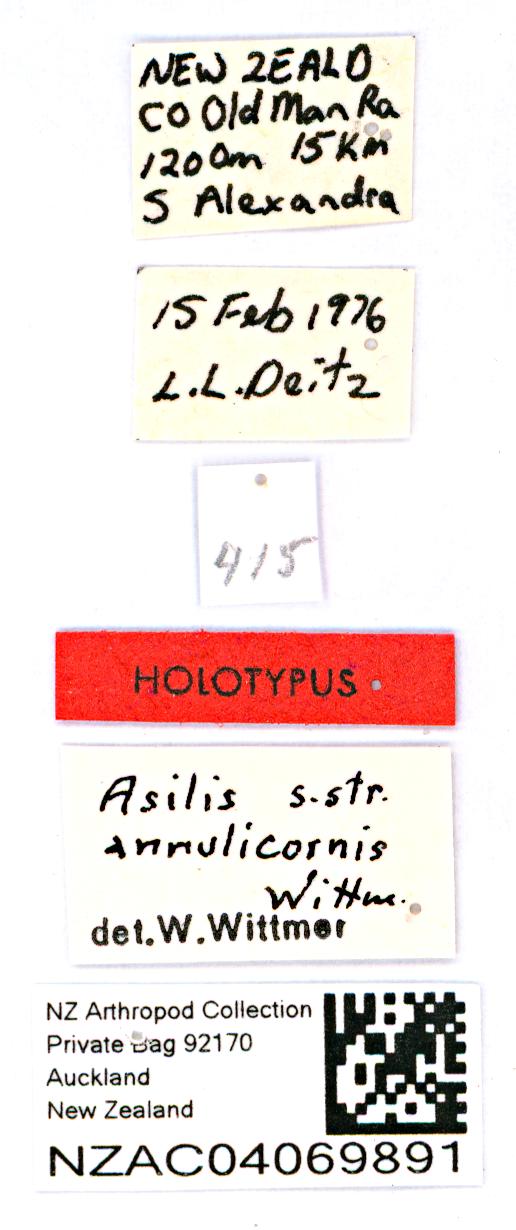 NEW ZEALD
CO Old Man Ra
1200m 15Km
S Alexandra
15 Feb 1976
L.L.Deitz
415
HOLOTYPUS
Asilis s.str.
annulicornis
Wittm.
det.W.Wittmer
NZ Arthropod Collection
Private Bag 92170
Auckland
New Zealand
NZAC04069891